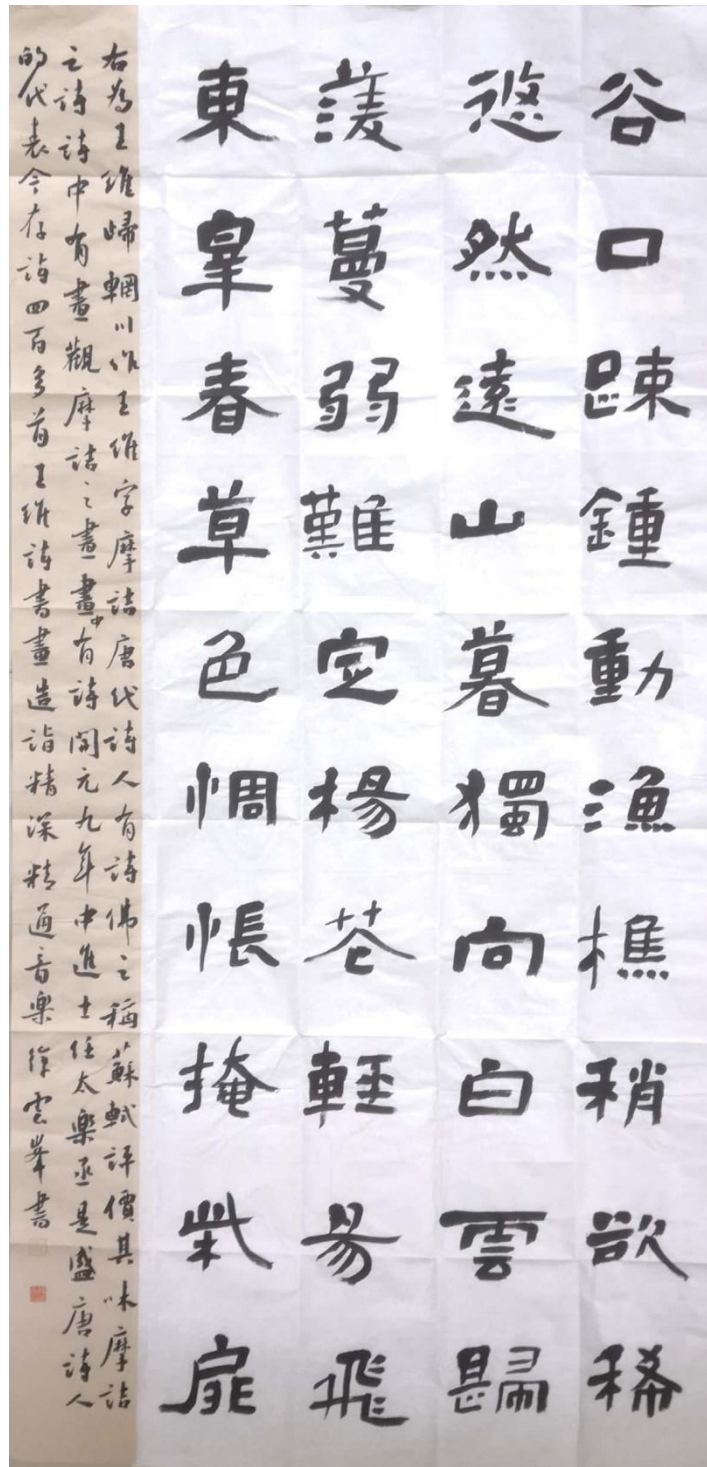 谷口踈鍾動漁樵稍欲稀
悠然遠山暮獨向白雲歸
蔆蔓弱難定楊花輕易飛
東皋春草色惆悵掩柴扉
右為王維歸輞川作王維字摩詰唐代詩人有詩佛之稱蘇軾評價其味摩詰
之詩詩中有畫觀摩詰之畫畫中有詩開元九年中進士任太樂丞是盛唐詩人
的代表今存詩四百多首王維詩書畫造詣精深精通音樂徐雲峯書